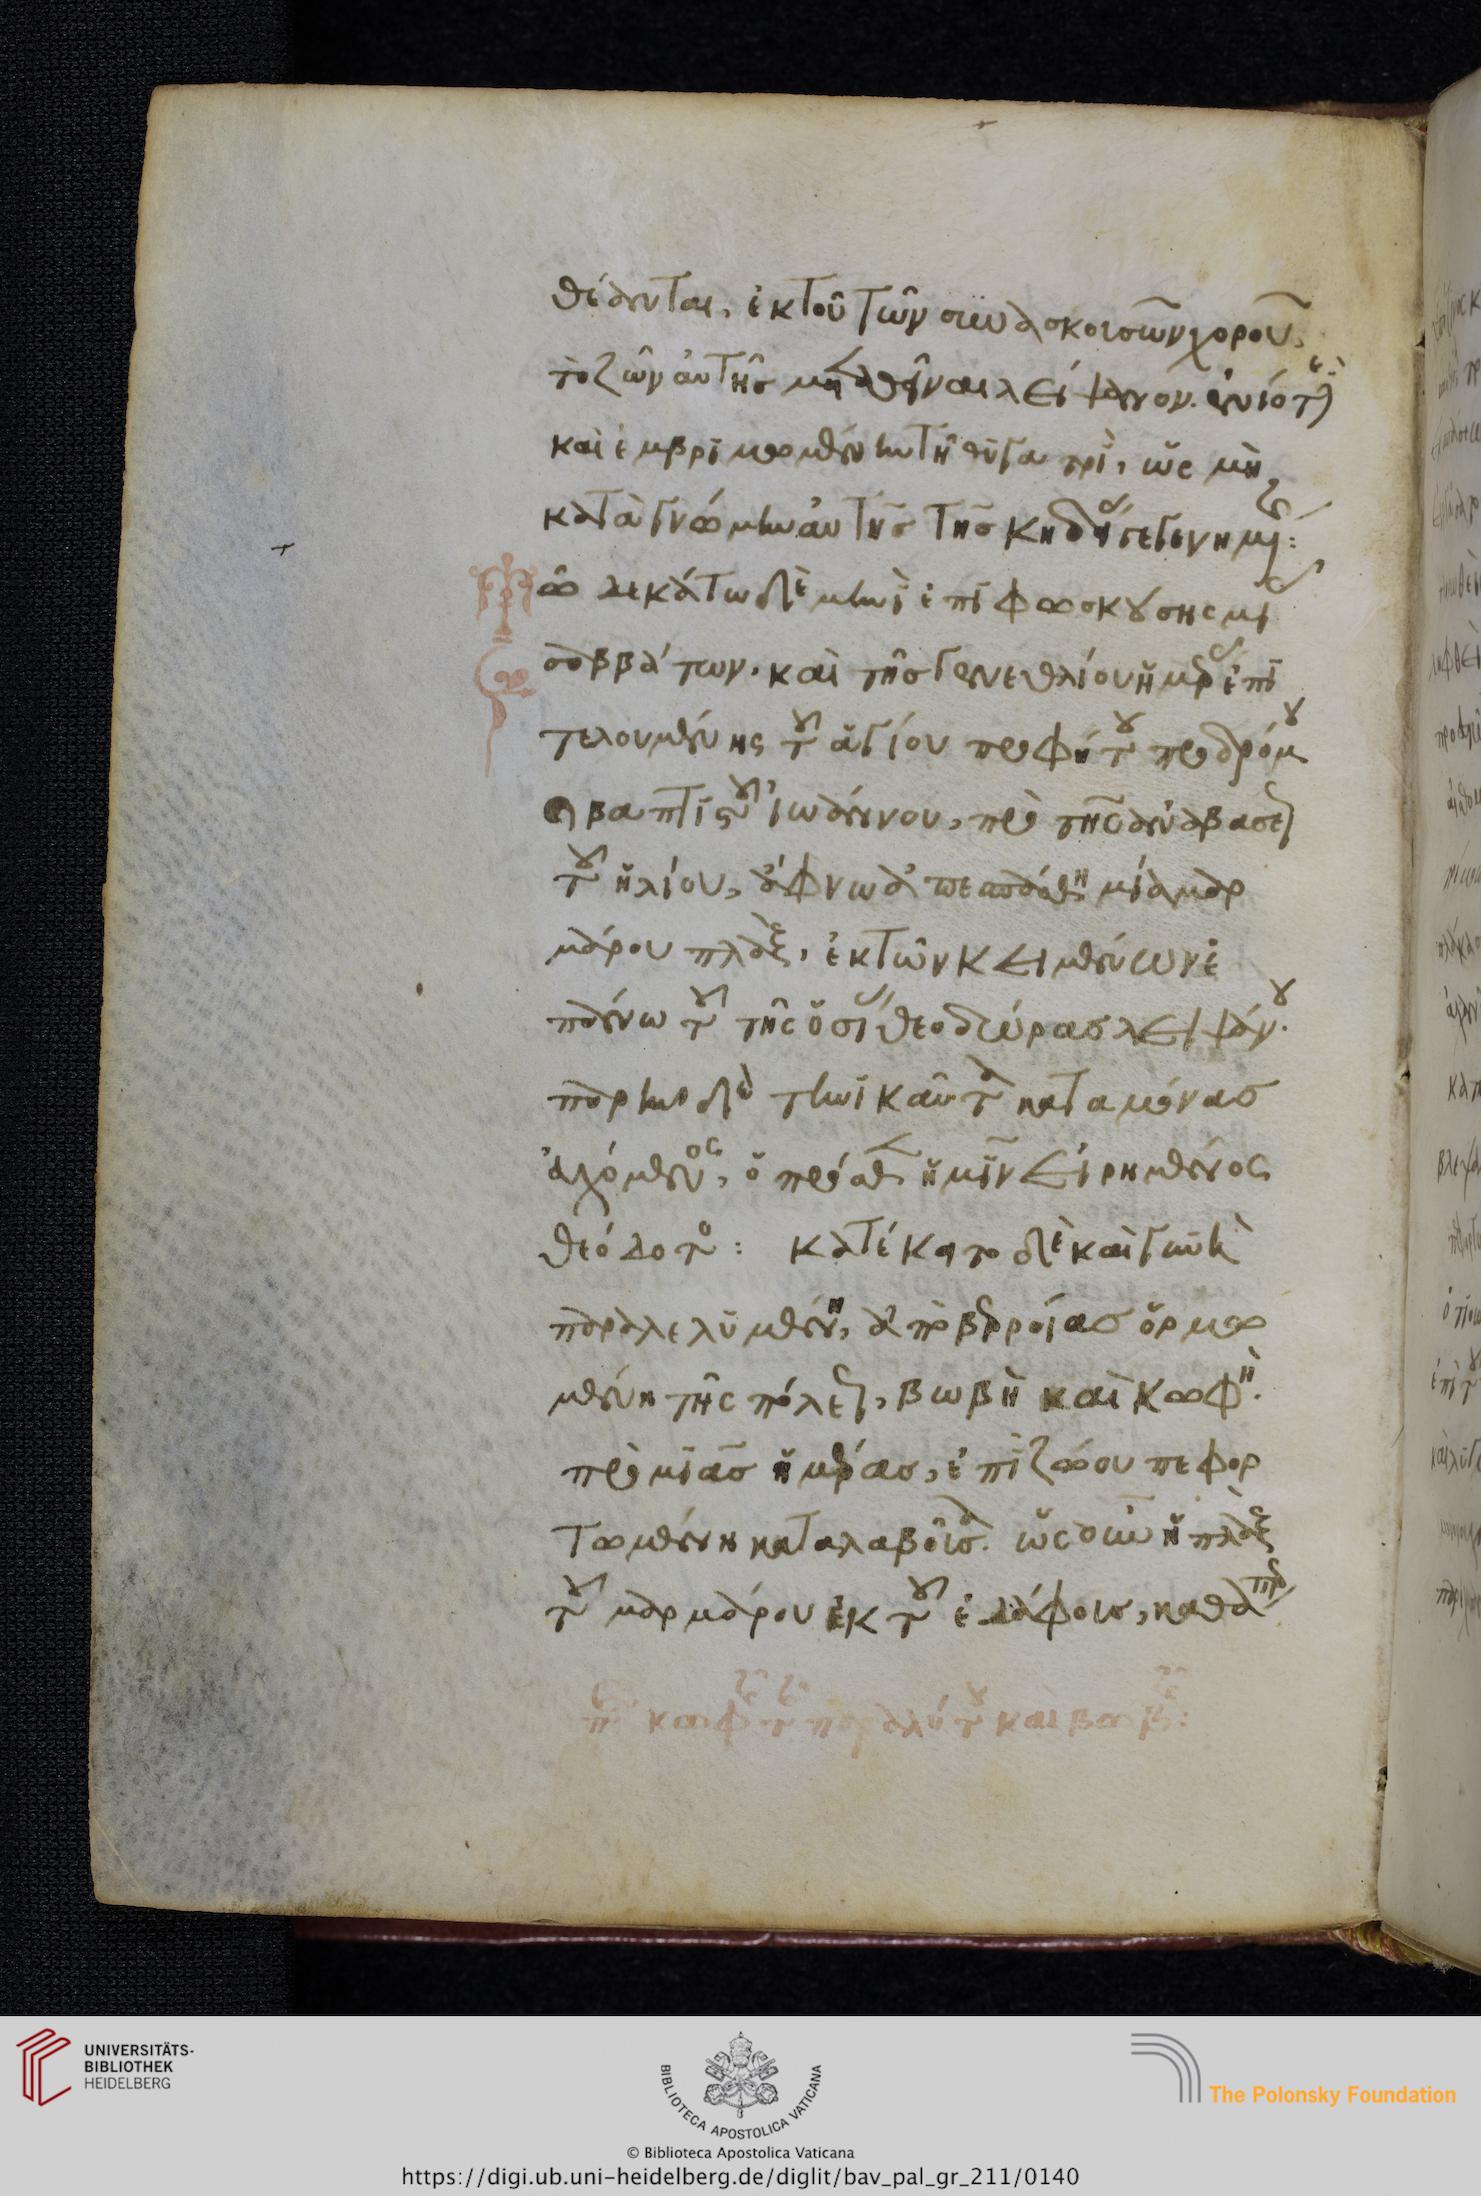 θέσθαι, ἐκ τοῦ τῶν συνασκουσῶν χοροῦ,
τὸ ζῶν αὐτῆς μὴ λείψανον. ἐνιότε
καὶ ἐμβριμωμένην τῆ θυγατρὶ, ὡς μὴ
κατὰ γνώμην αὐτῆς τῆς κηδείας γεγενημένης:
Τῶ δεκάτω δὲ μηνὶ ἐπιφωσκούσης μιᾶς
σαββάτων, καὶ τῆς γενεθλίου ἡμέρας ἐπι
τελουμένης τοῦ ἁγίου προφήτου προδρόμου
καὶ βαπτιστοῦ Ἰωάννου, πρὸ τῆς ἀναβάσεως
τοῦ ἡλίου, ἄφνω μία μαρ
μάρου πλὰξ, ἐκ τῶν κειμένων ἐ
πάνω τοῦ τῆς ὁσίας Θεοδώρας λειψάνου.
παρῆν δὲ τηνικαῦτα κατα μόνας
εὐχόμενος, ὁ πρόσθεν ἡμῖν εἰρημένος
Θεόδοτος: κατέκειτο δὲ καὶ γυνὴ
παραλελυμένη, ἀπὸ βερροίας ὁρμω
μένη τῆς πόλεως, βωβὴ καὶ κωφὴ.
πρὸ μιᾶς ἡμέρας, ἐπὶ ζώου πεφορ
τωμένη καταλαβοῦσα. ὡς οὖν ἡ πλὰξ
τοῦ μαρμάρου ἐκ τοῦ ἐδάφους, καθάπερ
κωφ παραλύτου καὶ βωβ:
UNIVERSITÄTS-
BIBLIOTHEK
HEIDELBERG
BIBLIOTECA APOSTOLICA VATICANA
The Polonsky Foundation
© Biblioteca Apostolica Vaticana
https://digi.ub.uni-heidelberg.de/diglit/bav_pal_gr_211/0140